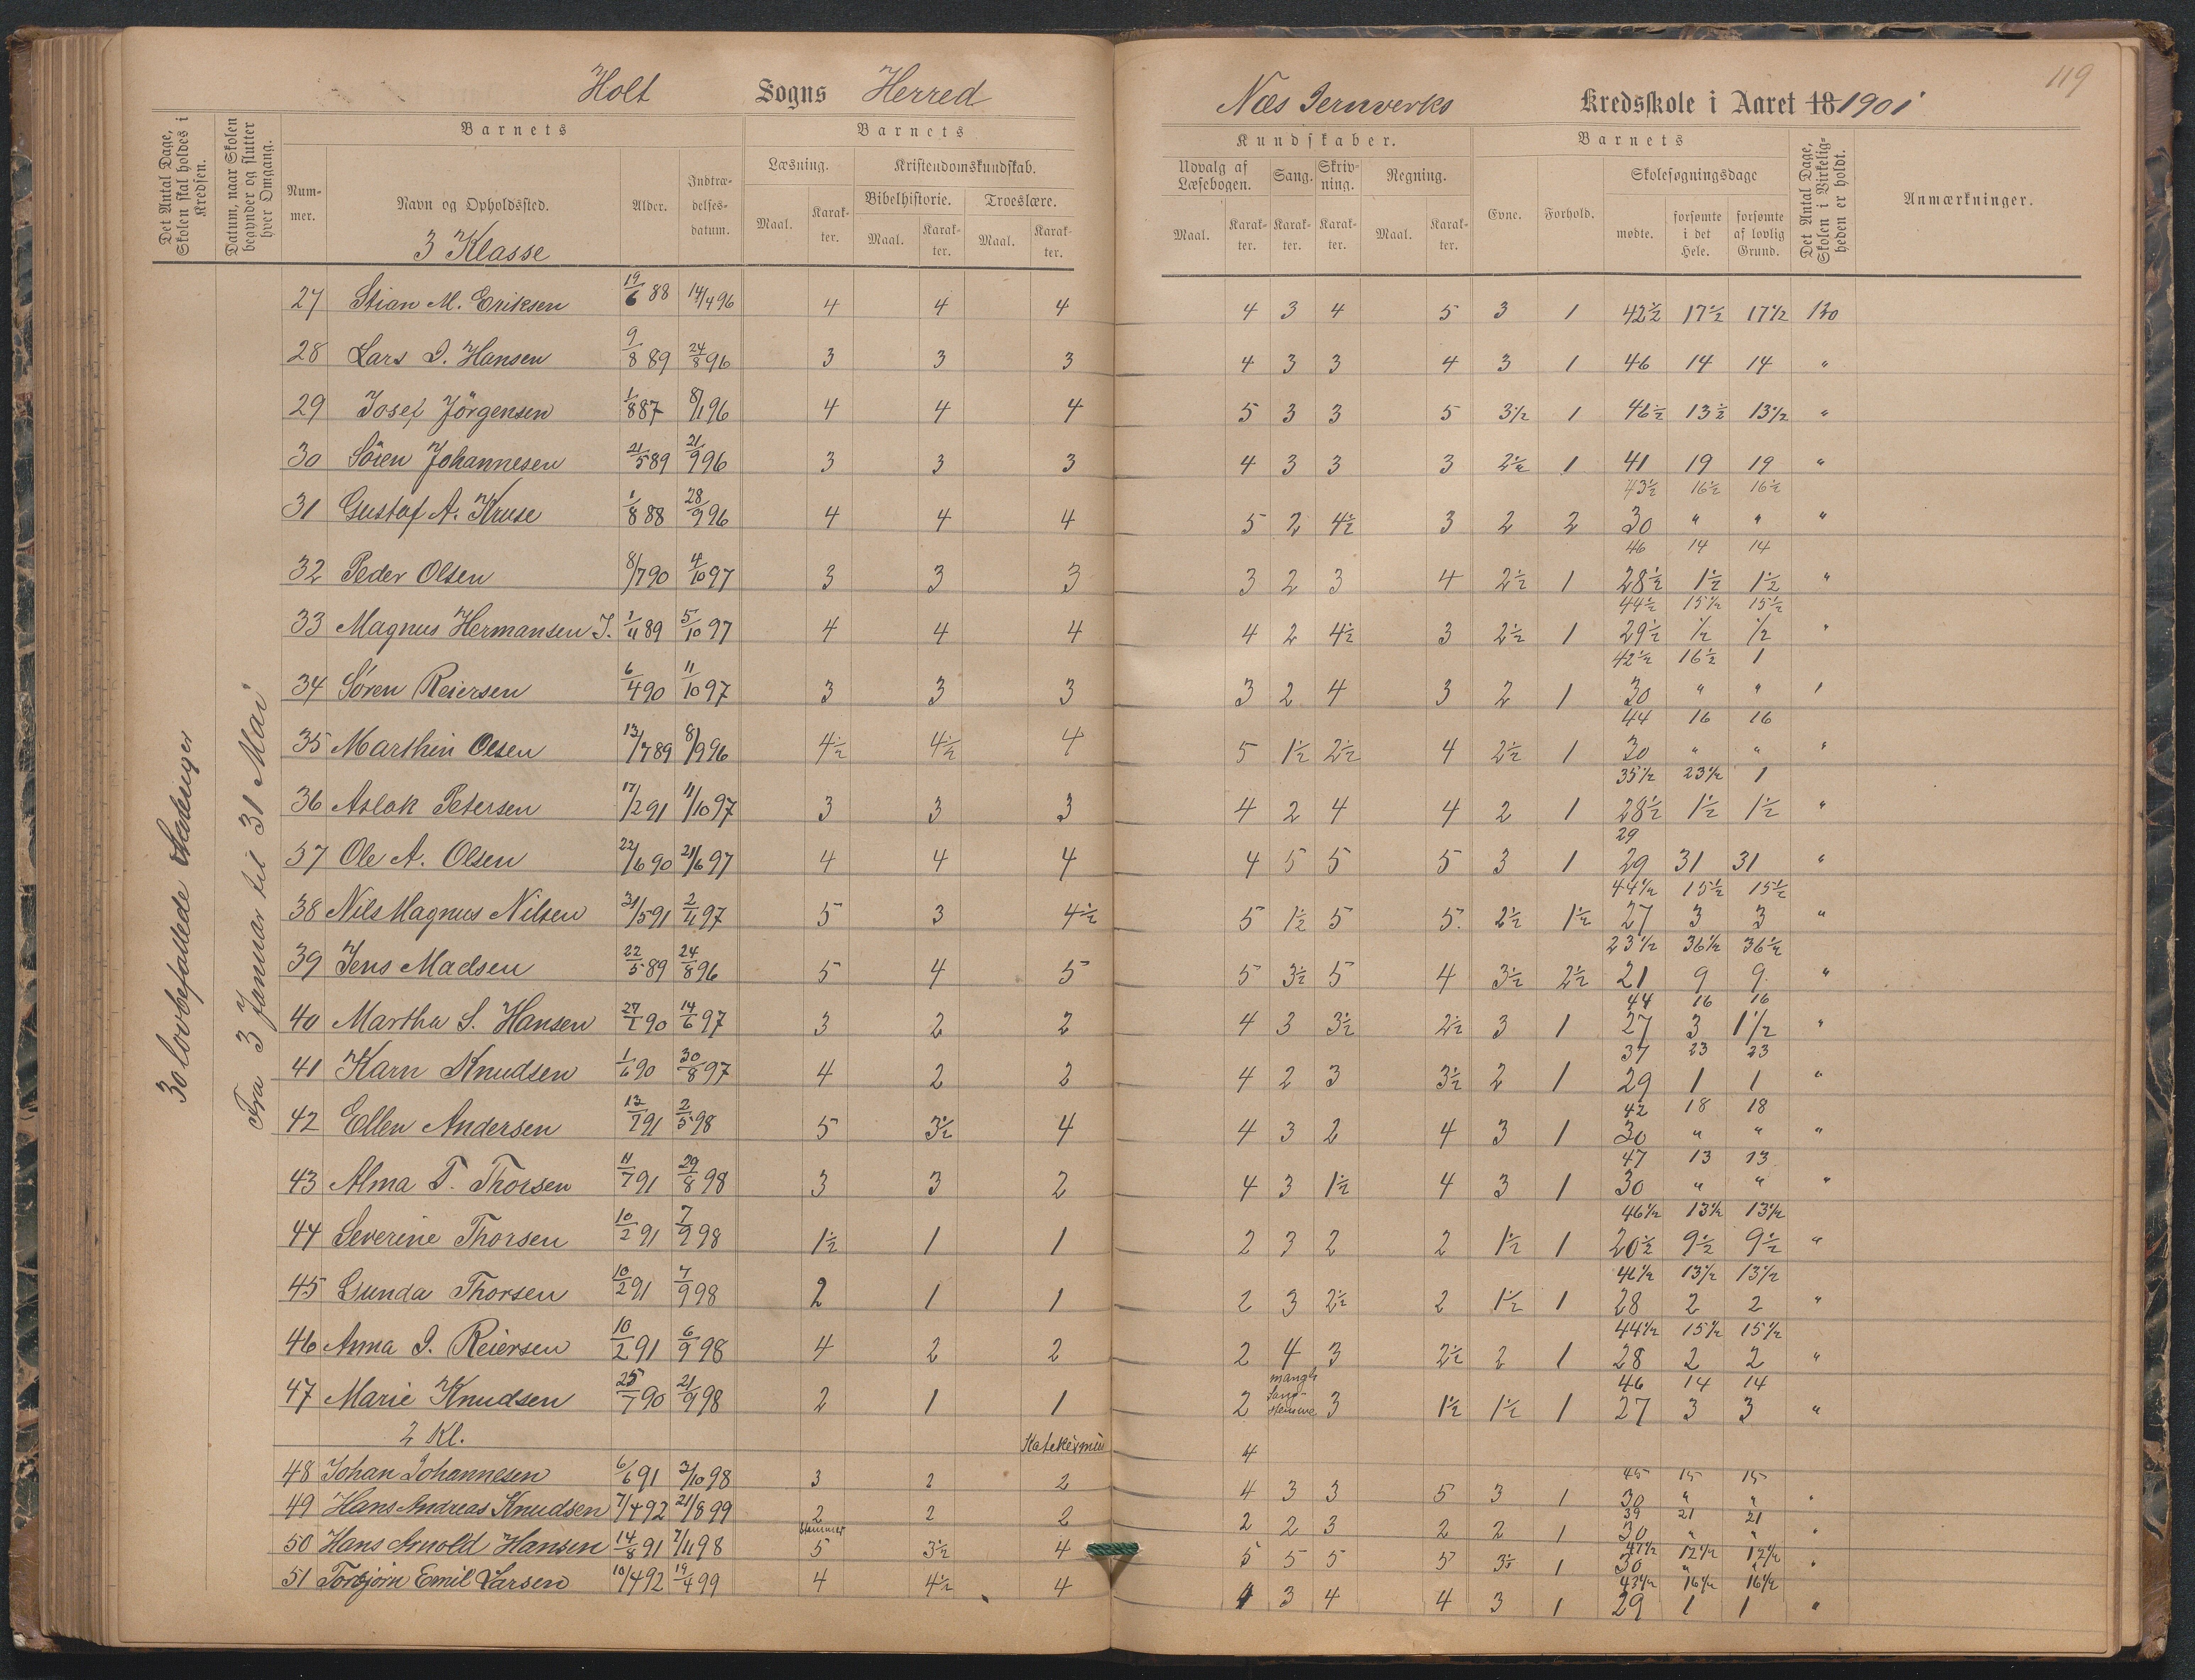 Holt Sogns Herred
Næs Jernverks Kredsskole i Aaret 18 1901
119
Det Antal Dage, Skolen skal holdes i Kredsen.
Datum, naar Skolen begynder og slutter hver Omgang.
Barnets
Barnets
Kundskaber.
Barnets
Det Antal Dage, Skolen i Virkeligheden er holdt.
Anmærkninger.
Nummer.
Navn og Opholdssted.
Alder.
Indtrædelsesdatum.
Læsning.
Kristendomskundskab.
Bibelhistorie.
Troeslære.
Udvalg af Læsebogen.
Sang.
Skrivning.
Regning.
Evne.
Forhold.
Skolesøgningsdage
Maal. Karakter. Maal. Karakter. Maal. Karakter.
Maal. Karakter. Karakter. Karakter. Maal. Karakter.
mødte. forsømte i det Hele. forsømte af lovlig Grund.
3 Klasse
30 lovbefallede
Fra 3 Januar til 31 Mai
27 Stian M. Eriksen 19/6 88 14/4 96 4 4 4 4 3 4 5 3 1 42½ 17½ 17½ 120
28 Lars I. Hansen 9/8 89 24/8 96 3 3 3 4 3 3 4 3 1 46 14 14 "
29 Josef Jörgensen 1/8 87 8/1 96 4 4 4 5 3 3 5 3½ 1 46½ 13½ 13½ "
30 Sören Johannesen 21/5 89 21/9 96 3 3 3 4 3 3 3 2½ 1 41 19 19 "
43½ 16½ 16½
31 Gustaf A. Kruse 1/8 88 28/9 96 4 4 4 5 2 4½ 3 2 2 30 " " "
46 14 14
32 Peder Olsen 8/7 90 4/10 97 3 3 3 3 2 3 4 2½ 1 28½ 1½ 1½ "
44½ 15½ 15½
33 Magnus Hermansen J. 1/11 89 5/10 97 4 4 4 4 2 4½ 3 2½ 1 29½ ½ ½ "
42½ 16½ 1
34 Søren Reiersen 6/4 90 11/10 97 3 3 3 3 2 4 3 2 1 30 " " "
44 16 16
35 Marthin Olsen 13/7 89 8/9 96 4½ 4½ 4 5 1½ 2½ 4 2½ 1 30 " " "
35½ 23½ 1
36 Aslak Petersen 17/2 91 11/10 97 3 3 3 4 2 4 4 2 1 28½ 1½ 1½ "
29
37 Ole A. Olsen 22/6 90 21/6 97 4 4 4 4 5 5 5 3 1 29 31 31 "
44½ 15½ 15½
38 Nils Magnus Nilsen 31/5 91 2/11 97 5 3 4½ 5 1½ 5 5. 2½ 1½ 27 3 3 "
23½ 36½ 36½
39 Jens Madsen 22/5 89 24/8 96 5 4 5 5 3½ 5 4 3½ 2½ 21 9 9. "
44 16 16
40 Martha S. Hansen 27/1 90 14/6 97 3 2 2 4 3 3½ 2½ 3 1 27 3 1½ "
37 23 23
41 Karn Knudsen 1/6 90 30/8 97 4 2 2 4 2 3 3½ 2 1 29 1 1 "
42 18 18
42 Ellen Andersen 13/7 91 2/5 98 5 3½ 4 4 3 2 4 3 1 30 " " "
47 13 13
43 Alma T. Thorsen 11/7 91 29/8 98 3 3 2 4 3 1½ 4 3 1 30 " " "
46½ 13½ 13½
44 Severine Thorsen 10/2 91 7/9 98 1½ 1 1 2 3 2 2 1½ 1 20½ 9½ 9½ "
46½ 13½ 13½
45 Gunda Thorsen 10/2 91 7/9 98 2 1 1 2 3 2½ 2 1½ 1 28 2 2 "
44½ 15½ 15½
46 Anna I. Reiersen 10/2 91 6/9 98 4 2 2 2 4 3 2½ 2 1 28 2 2 "
46 14 14
47 Marie Knudsen 25/7 90 21/9 98 2 1 1 2 mangl. Sangstemme 3 1½ 1½ 1 27 3 3 "
2 Kl. 4
45 15 15
48 Johan Johannesen 6/6 91 3/10 98 3 2 2 4 3 3 5 3 1 30 " " "
39 21 21
49 Hans Andreas Knudsen 7/4 92 21/8 99 2 2 2 2 2 3 2 2 1 30 " " "
47½ 12½ 12½
50 Hans Arnold Hansen 14/8 91 7/11 98 5 3½ 4 5 5 5 5 3½ 1 30 " "
43½ 16½ 16½
51 Torbjørn Emil Larsen 10/4 92 19/4 99 4 4½ 4 4 3 4 4 3 1 29 1 1 "